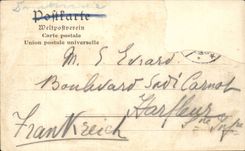 Postkarte
Weltpostverein
Carte postale
Union postale universelle
M. E. Evrard
Boulevard Sadi Carnot
Harfleur
Frankreich